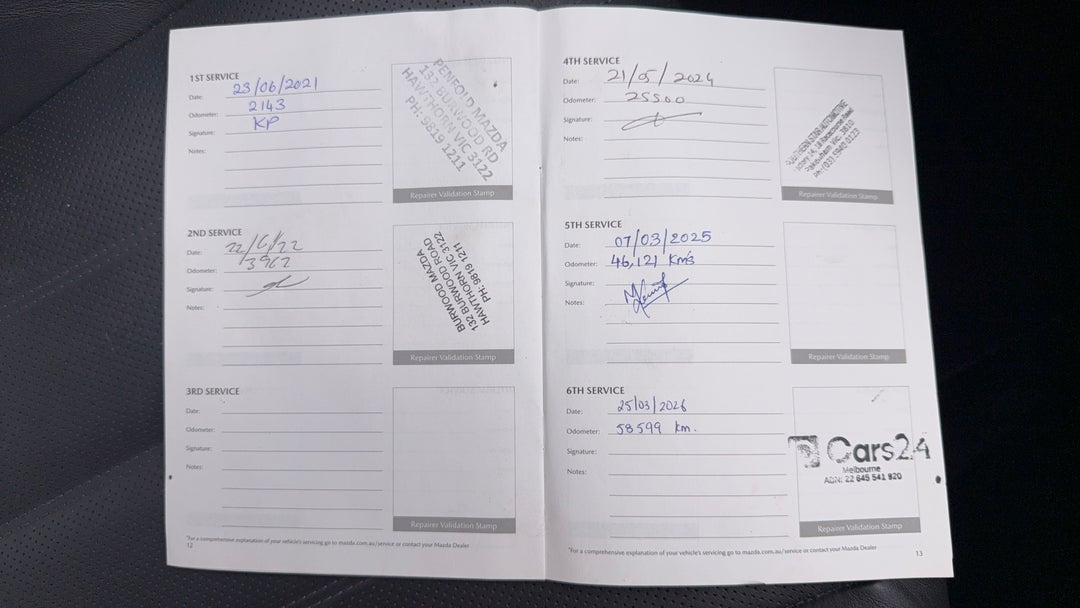 1ST SERVICE
Date: 23/06/2021
Odometer: 2143
Signature: KP
Notes:
PENFOLD MAZDA
132 BURWOOD RD
HAWTHORN VIC 3122
PH: 9819 1211
Repairer Validation Stamp
2ND SERVICE
Date: 22/6/22
Odometer: 3962
Signature:
Notes:
BURWOOD MAZDA
132 BURWOOD ROAD
HAWTHORN VIC 3122
PH: 9819 1211
Repairer Validation Stamp
3RD SERVICE
Date:
Odometer:
Signature:
Notes:
Repairer Validation Stamp
*For a comprehensive explanation of your vehicle's servicing go to mazda.com.au/service or contact your Mazda Dealer
12
4TH SERVICE
Date: 21/05/2024
Odometer: 25500
Signature:
Notes:
SOUTHERN STAR AUTOMOTIVE
Factory 14, 18 Racecourse Road
Pakenham Vic. 3810
Ph: (03) 5940 0123
Repairer Validation Stamp
5TH SERVICE
Date: 07/03/2025
Odometer: 46,121 Km's
Signature:
Notes:
Repairer Validation Stamp
6TH SERVICE
Date: 25/03/2026
Odometer: 58599 km.
Signature:
Notes:
Cars24
Melbourne
22 645 541 920
Repairer Validation Stamp
*For a comprehensive explanation of your vehicle's servicing go to mazda.com.au/service or contact your Mazda Dealer
13